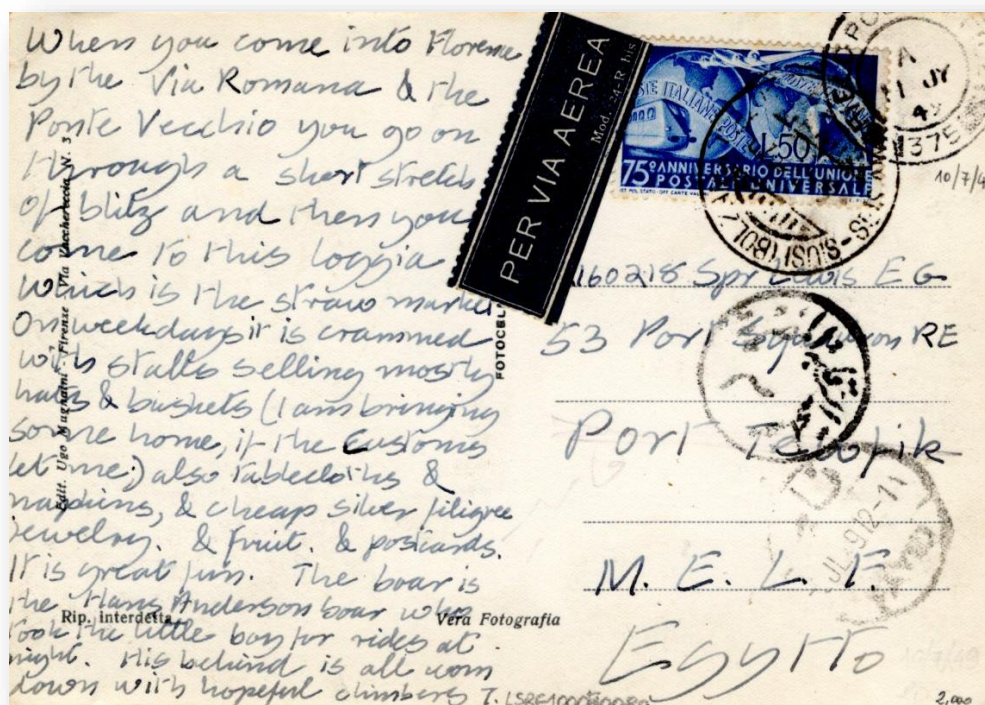 When you come into Florence
by the Via Romana & the
Ponte Vecchio you go on
through a short stretch
of blitz and then you
come to this loggia
which is the straw market
On weekdays it is crammed
with stalls selling mostly
hats & baskets (I am bringing
some home, if the Customs
let me;) also tablecloths &
napkins, & cheap silver filigree
jewelry. & fruit. & postcards.
It is great fun. The boar is
the Hans Anderson boar who
took the little boy for rides at
night. His behind is all worn
down with hopeful climbers T.
Rip. interdetta
Vera Fotografia
Edit. Ugo Magnaini - Firenze Via Vacchereccia N. 3
FOTOCEL
PER VIA AEREA
Mod. 24-R bis
POSTE ITALIANE
L.50
75º ANNIVERSARIO DELL'UNIONE
POSTALE UNIVERSALE
SIUSI (BOLZ
A
JY
375
10/7/4
160218 Spr Lewis E G
53 Port Squadron RE
Port Tewfik
M. E. L. F.
Egytto
JL 49 12-1
CAIRO
10/7/49
2,000